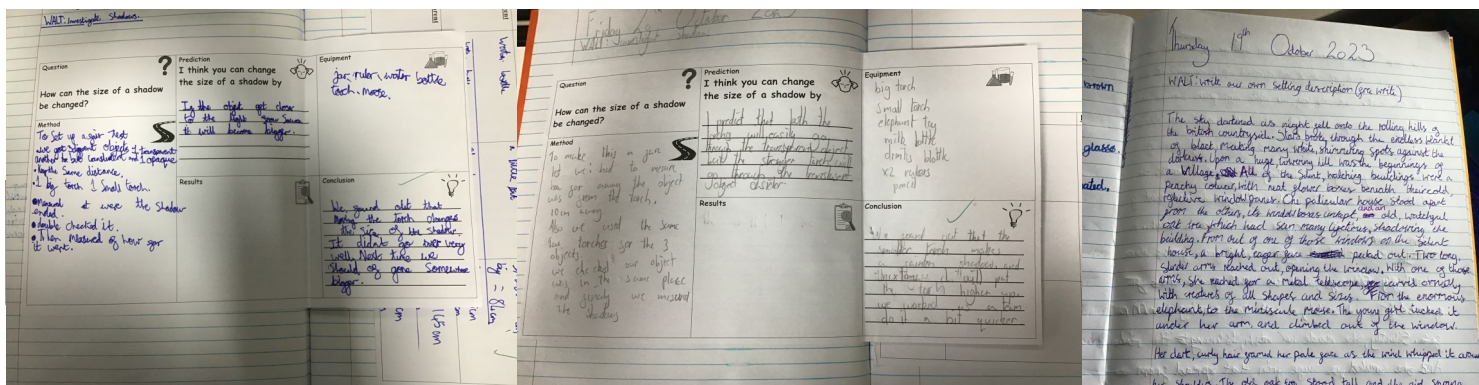 WALT: Investigate Shadows.
Question
?
How can the size of a shadow
be changed?
Prediction
I think you can change
the size of a shadow by
If the object get close
to the light source
it will become bigger.
Equipment
jar, ruler, water bottle
torch, mouse.
Method
To set up a fair test
we got different objects 1 transparent
another be translucent and 1 opaque
keep the same distance.
1 big torch 1 small torch.
measured were the shadow
ended.
double checked it.
then measured of how far
it went.
Results
Conclusion
We found out that
moving the torch changes
the size of the shadow.
It didn't go very
well. Next time we
should of gone somewhere
bigger.
Friday October
Question
?
How can the size of a shadow
be changed?
Prediction
I think you can change
the size of a shadow by
I predict that both the
will easily go
through the transparent object
but the stronger torch will
go through the translucent
object
Equipment
big torch
small torch
elephant toy
milk bottle
drinks bottle
x2 rulers
pencil
Method
To make this a fair
test we had to measure
how far away the object
was from the torch,
10cm away
Also we used the same
two torches for the 3
objects
we checked our object
was in the same place
and we measured
the shadows
Results
Conclusion
We found out that the
smaller torch makes
a shadow, and
Next time I will put
the torch higher up.
we worked as a team
do it a bit quicker
Thursday 19th October 2023
WALT: write our own setting description (gra write)
The sky darkened as night fell onto the rolling hills of
the british countryside. Stars broke through the endless blanket
of black, making many white, shimmering spots against the
darkness. Upon a huge towering hill was the beginnings of
a village. All of the silent, matching buildings were a
peachy colour, with neat flower boxes beneath their cold,
reflective windowpanes. One particular house stood apart
from the others, its windowboxes unkept, and an old, watchful
oak tree which had seen many lifetimes, shadowing the
building. From out of one of those windows on the silent
house, a bright, eager face peeked out. Two long,
slender arms reached out, opening the window. With one of those
arms, she reached for a metal telescope, carved ornately
with creatures of all shapes and sizes. From the enormous
elephant, to the miniscule mouse. The young girl tucked it
under her arm, and climbed out of the window.
Her dark, curly hair framed her pale face as the wind whipped it around
her shoulders. The old oak tree stood tall and the girl